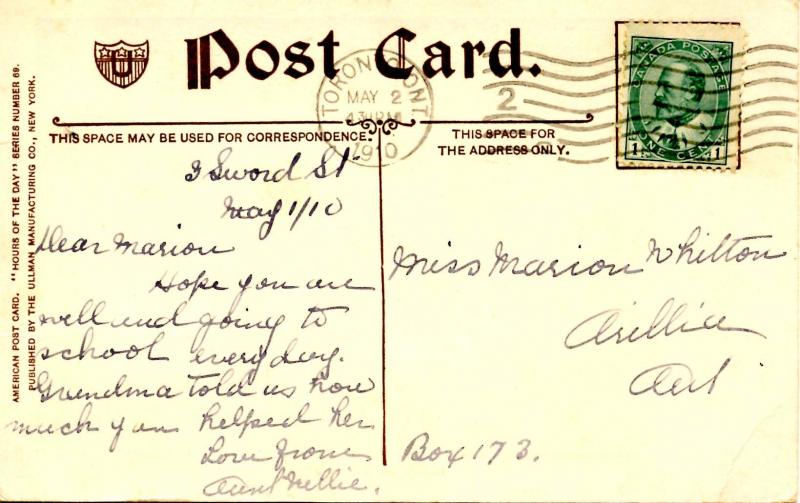 Post Card.
TORONTO, ONT
MAY 2
1910
2
CANADA POSTAGE
ONE CENT
1 1
U
THIS SPACE MAY BE USED FOR CORRESPONDENCE.
THIS SPACE FOR
THE ADDRESS ONLY.
AMERICAN POST CARD. "HOURS OF THE DAY" SERIES NUMBER 69.
PUBLISHED BY THE ULLMAN MANUFACTURING CO., NEW YORK.
Sword St
May 1/10
Dear Marion
Hope you are
well and going to
school every day.
Grandma told us how
much you helped her
Love from
Aunt Nellie.
Miss Marion Whilton
Orillia
Ont
Box 173.